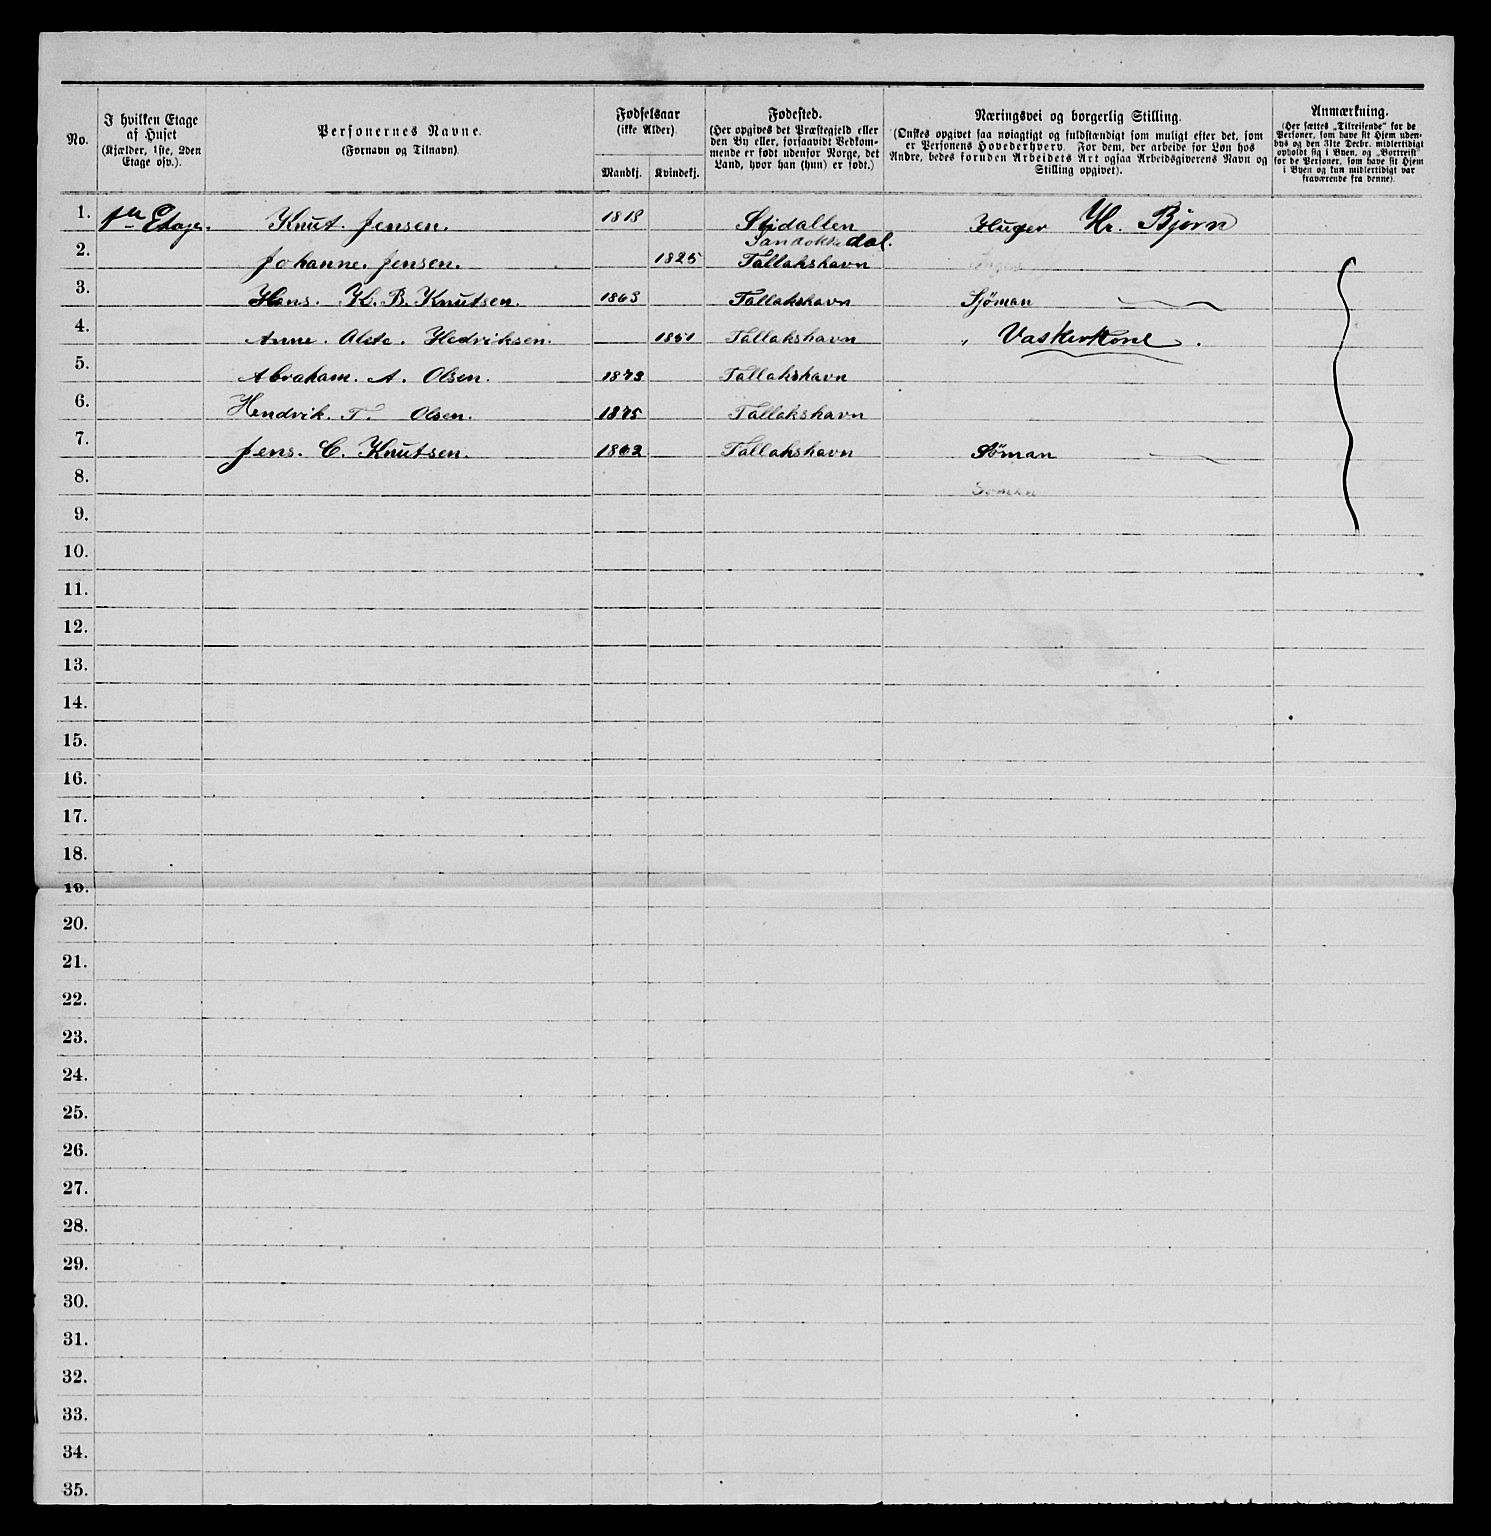 No.
I hvilken Etage
af Huset
(Kjælder, 1ste, 2den
Etage osv.).
Personernes Navne.
(Fornavn og Tilnavn)
Fødselsaar
(ikke Alder)
Mandkj.
Kvindekj.
Fødested.
(Her opgives det Præstegjeld eller
den By eller, forsaavidt Vedkom-
mende er født udenfor Norge, det
Land, hvor han (hun) er født.)
Næringsvei og borgerlig Stilling.
(Ønskes opgivet saa nøiagtigt og fuldstændigt som muligt efter det, som
er Personens Hovederhverv. For dem, der arbeide for Løn hos
Andre, bedes foruden Arbeidets Art ogsaa Arbeidsgiverens Navn og
Stilling opgivet).
Anmærkning.
(Her sættes „Tilreisende" for de
Personer, som have sit Hjem uden-
bys og den 31te Decbr. midlertidigt
opholdt sig i Byen, og „Bortreist"
for de Personer, som have sit Hjem
i Byen og kun midlertidigt var
fraværende fra denne).
1. 1ste Etage. Knut. Jensen. 1818 Huger Hr. Bjørn
dal.
2. Johanne. Jensen. 1825 Tallakshavn
3. Hans. K. B. Knutsen. 1863 Tallakshavn Sjöman
4. Anne. Olete. Hedriksen. 1851 Tallakshavn Vaskerkone.
5. Abraham. A. Olsen. 1873 Tallakshavn
6. Hendrik. T. Olsen. 1875 Tallakshavn
7. Jens. C. Knutsen. 1862 Tallakshavn Söman
8.
9.
10.
11.
12.
13.
14.
15.
16.
17.
18.
19.
20.
21.
22.
23.
24.
25.
26.
27.
28.
29.
30.
31.
32.
33.
34.
35.